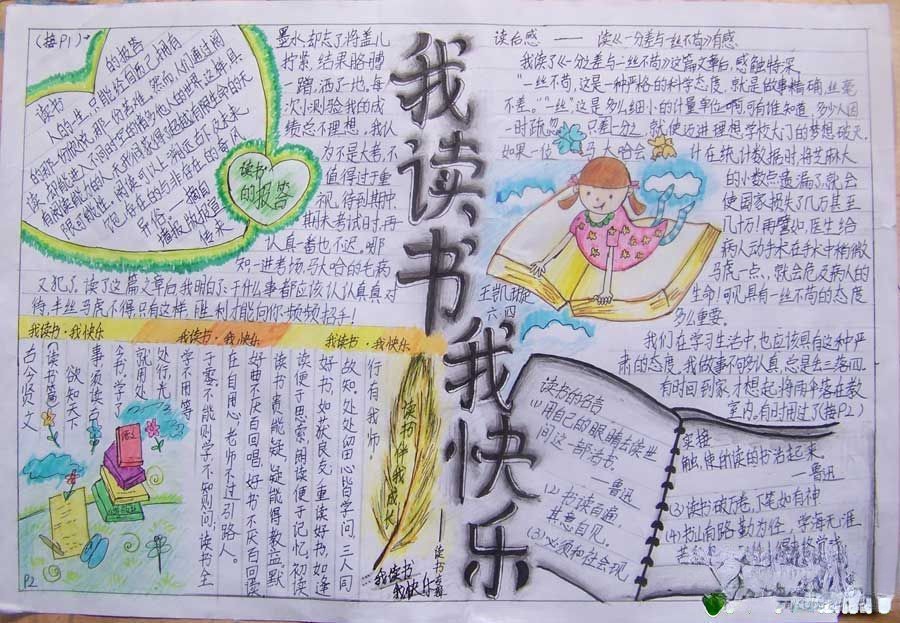 我读书我快乐
读后感 —— 读《一分差与一丝不苟》有感
我读了《一分之差与一丝不苟》这篇文章后,感触特深。
"一丝不苟",这是一种严格的科学态度,就是做事精确,丝毫
不差。"一丝"这是多么细小的计量单位啊,可有谁知道,多少人因
一时疏忽,只差一分之,就使迈进理想学校大门的梦想破灭,
如果一位马大哈会计在统计数据时,将芝麻大
的小数点遗漏了,就会
使国家损失了几万甚至
几十万!再譬如,医生给
病人动手术,在手术中稍微
马虎一点,就会危及病人的
生命!可见具有一丝不苟的态度
多么重要。
我们在学习生活中,也应该具有这种严
肃的态度。我做事不够认真,总是丢三落四。
有时回到家,才想起将雨伞落在教
室内,有时用过了(接P2)
王凯旋
六、四
(接P1)
墨水,却忘了将盖儿
拧紧,结果胳膊
一蹭,洒了一地,每
次小测验我的成
绩总不理想,我认
为不是大考,不
值得过于重
视,得到期中
期末考试时,再
认真一番也不迟。哪
知一进考场,马大哈的毛病
又犯了,读了这篇文章后,我明白了:干什么事都应该认认真真对
待,半丝马虎不得,只有这样,胜利才能向你频频招手!
读书
的报答
我读书·我快乐
我读书·我快乐
我读书·我快乐
古今贤文
读书篇
欲知天下
事,须读古
今书。学了
就用处
处行光,
学不用等
于零。不能则学,不知则问;读书全
在自用心,老师不过引路人。
好曲不厌百回唱,好书不厌百回读。
读书贵能疑,疑能得教益。默
读便于思索,朗读便于记忆。初读
好书,如获良友;重读好书,如逢
故知。处处留心皆学问,三人同
行有我师。
语文
读书伴我成长
——读书名言
我读书
我快乐
P2
读书的名言
(1)用自己的眼睛去读世
间这一部活书。
——鲁迅
(2)书读百遍,
其意自见。
(3)必须和社会现
实接
触,使的读的书活起来。
——鲁迅
(3)读书破万卷,下笔如有神
(4)书山有路勤为径,学海无涯